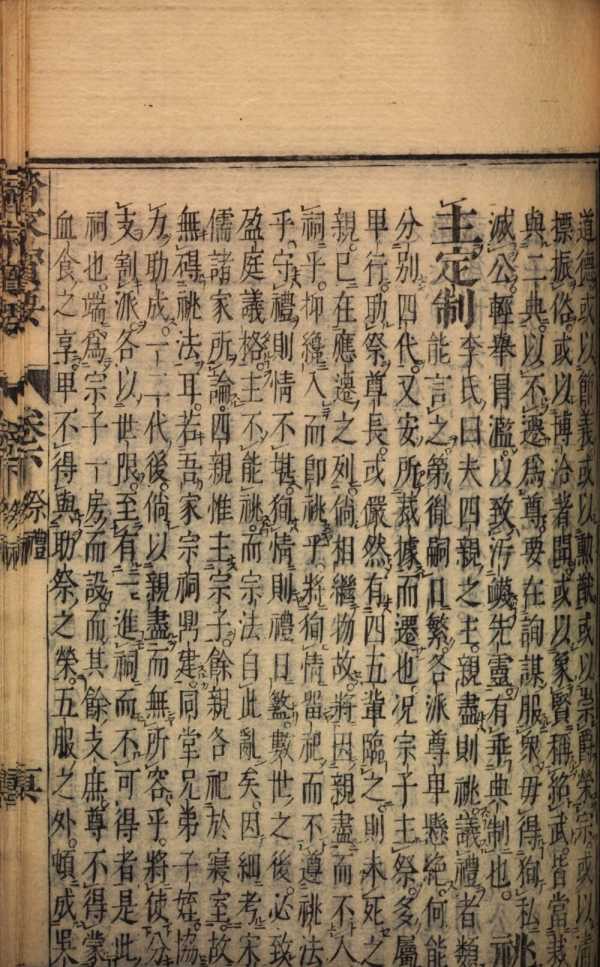 道德或以節義或以勳猷或以崇爵榮宗或以
標振俗或以博洽著聞或以象賢稱紹武皆當
與二典以不遷爲尊要在詢謀服衆毋得狥私
滅公輕舉冒濫以致汚衊先靈有垂典制也
主定制
李氏曰夫四親之主親盡則祧議禮者類
能言之第徿嗣日繁各派尊卑懸絶何能
分別四代又安所裁據而遷也况宗子主祭多屬
甲行助祭尊長或儼然有四五輩臨之則未死之
親已在應遷之列倘相繼物故將因親盡而不入
祠乎抑纔入而卽祧乎將狥情畱祀而不遵祧法
乎守禮則情不堪狥情則禮日繁數世之後必致
盈庭議格主不能祧而宗法自此亂矣因細考宋
儒諸家所論四親惟主宗子餘親各祀於寢室故
無得祧法耳若吾家宗祠鼎建同堂兄弟子姪協
力助成一二代後倘以親盡而無所容乎將使分
支割派各以世限至有一進祠而不可得者是此
祠也端爲宗子一房而設而其餘支庶尊不得蒙
血食之享卑不得與助祭之榮五服之外頓成
齊家寶要 卷六 祭禮